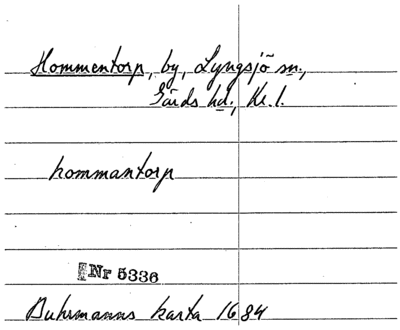 Hommentorp, by, Lyngsjö sn.,
Gärds hd., Kr. l.
hommantorp
Nr 5336
Buhrmanns karta 1684